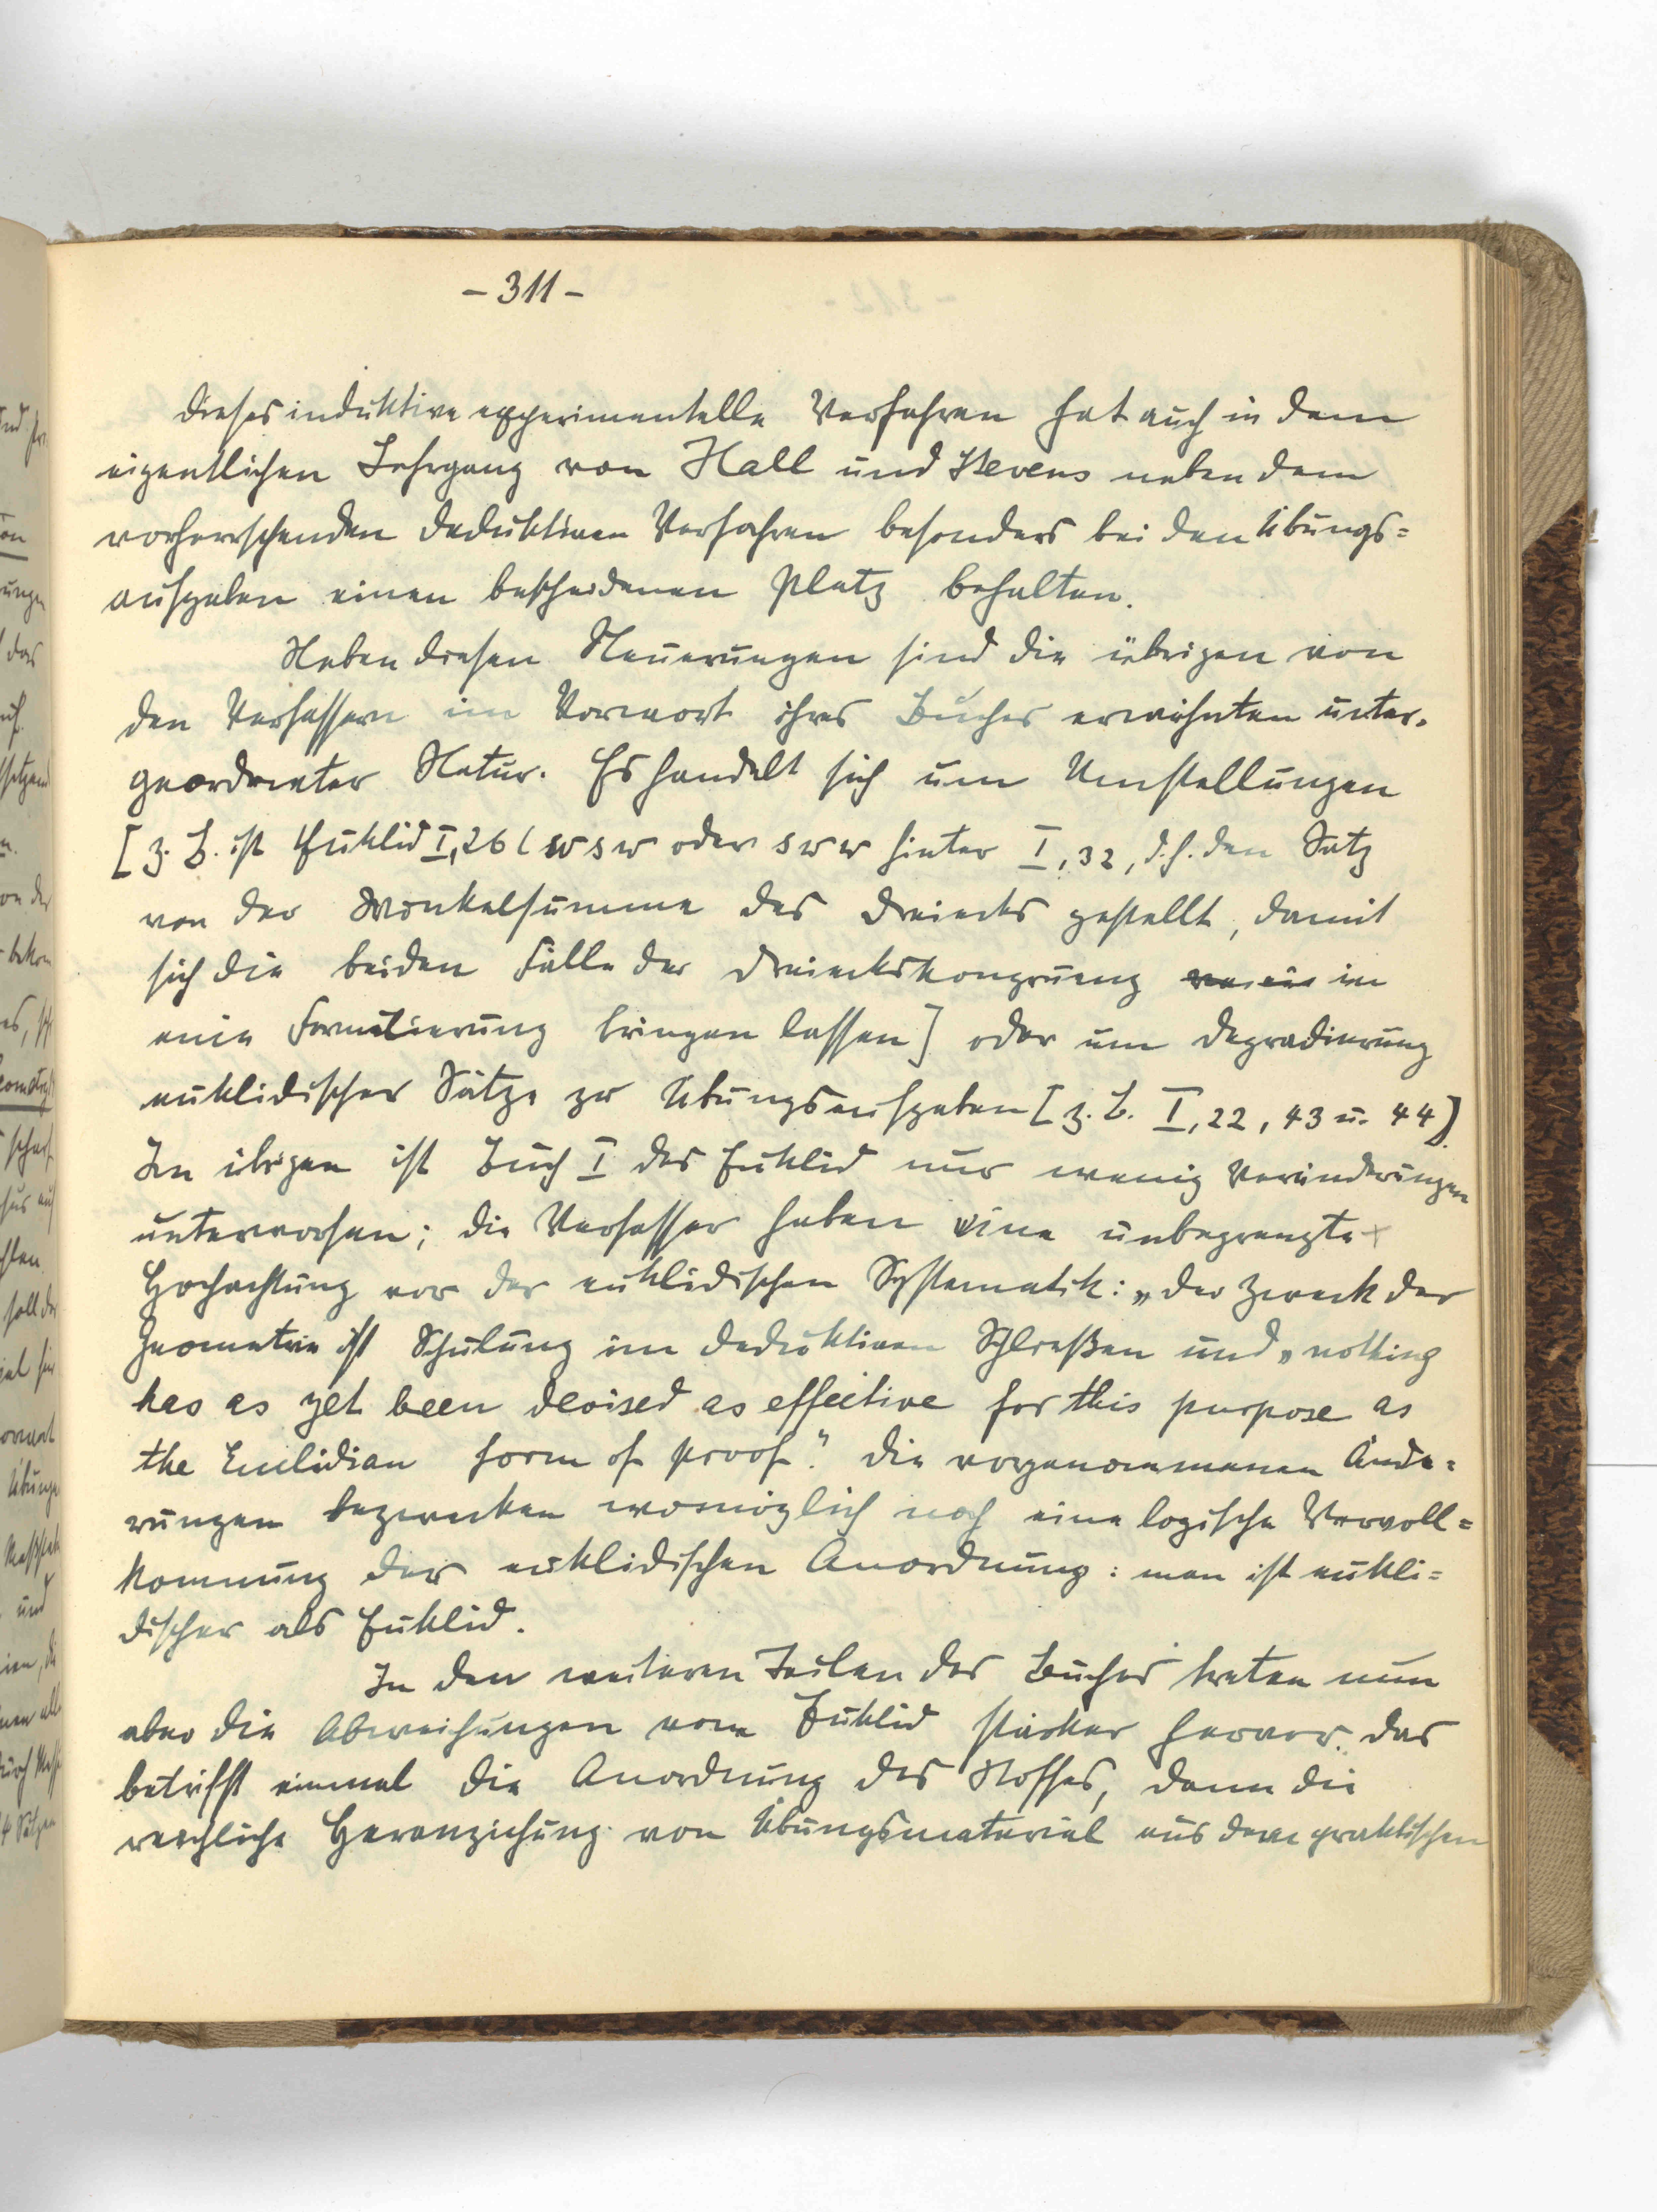 - 311 -
Dieses induktive experimentelle Verfahren hat auch in dem
eigentlichen Lehrgang von Hall und Stevens neben dem
vorherrschenden deduktiven Verfahren besonders bei den Übungs=
aufgaben einen bescheidenen Platz behalten.
Neben diesen Neuerungen sind die übrigen von
den Verfassern im Vorwort ihres Buches erwähnten unter-
geordneter Natur. Es handelt sich um Umstellungen
[z. B. ist Euklid I, 26 (wsw oder sww hinter I, 32, d. h. den Satz
von der Winkelsumme des Dreiecks gestellt, damit
sich die beiden Fälle der Dreieckskongruenz in
eine Formulierung bringen lassen] oder um Degradierung
euklidischer Sätze zu Übungsaufgaben [z. B. I, 22, 43 u. 44].
Im übrigen ist Buch I des Euklid nur wenig Veränderungen
unterworfen; die Verfasser haben eine unbegrenzte
Hochachtung vor der euklidischen Systematik: „Der Zweck der
Geometrie ist Schulung im deduktiven Schließen und „nothing
has as yet been devised as effective for this purpose as
the Euclidian form of proof." Die vorgenommenen Ände=
rungen bezwecken womöglich noch eine logische Vervoll=
kommnung der euklidischen Anordnung: man ist eukli=
discher als Euklid.
In den weiteren Teilen des Buches treten nun
aber die Abweichungen vom Euklid stärker hervor. Das
betrifft einmal die Anordnung des Stoffes, dann die
reichliche Heranziehung von Übungsmaterial aus dem praktischen